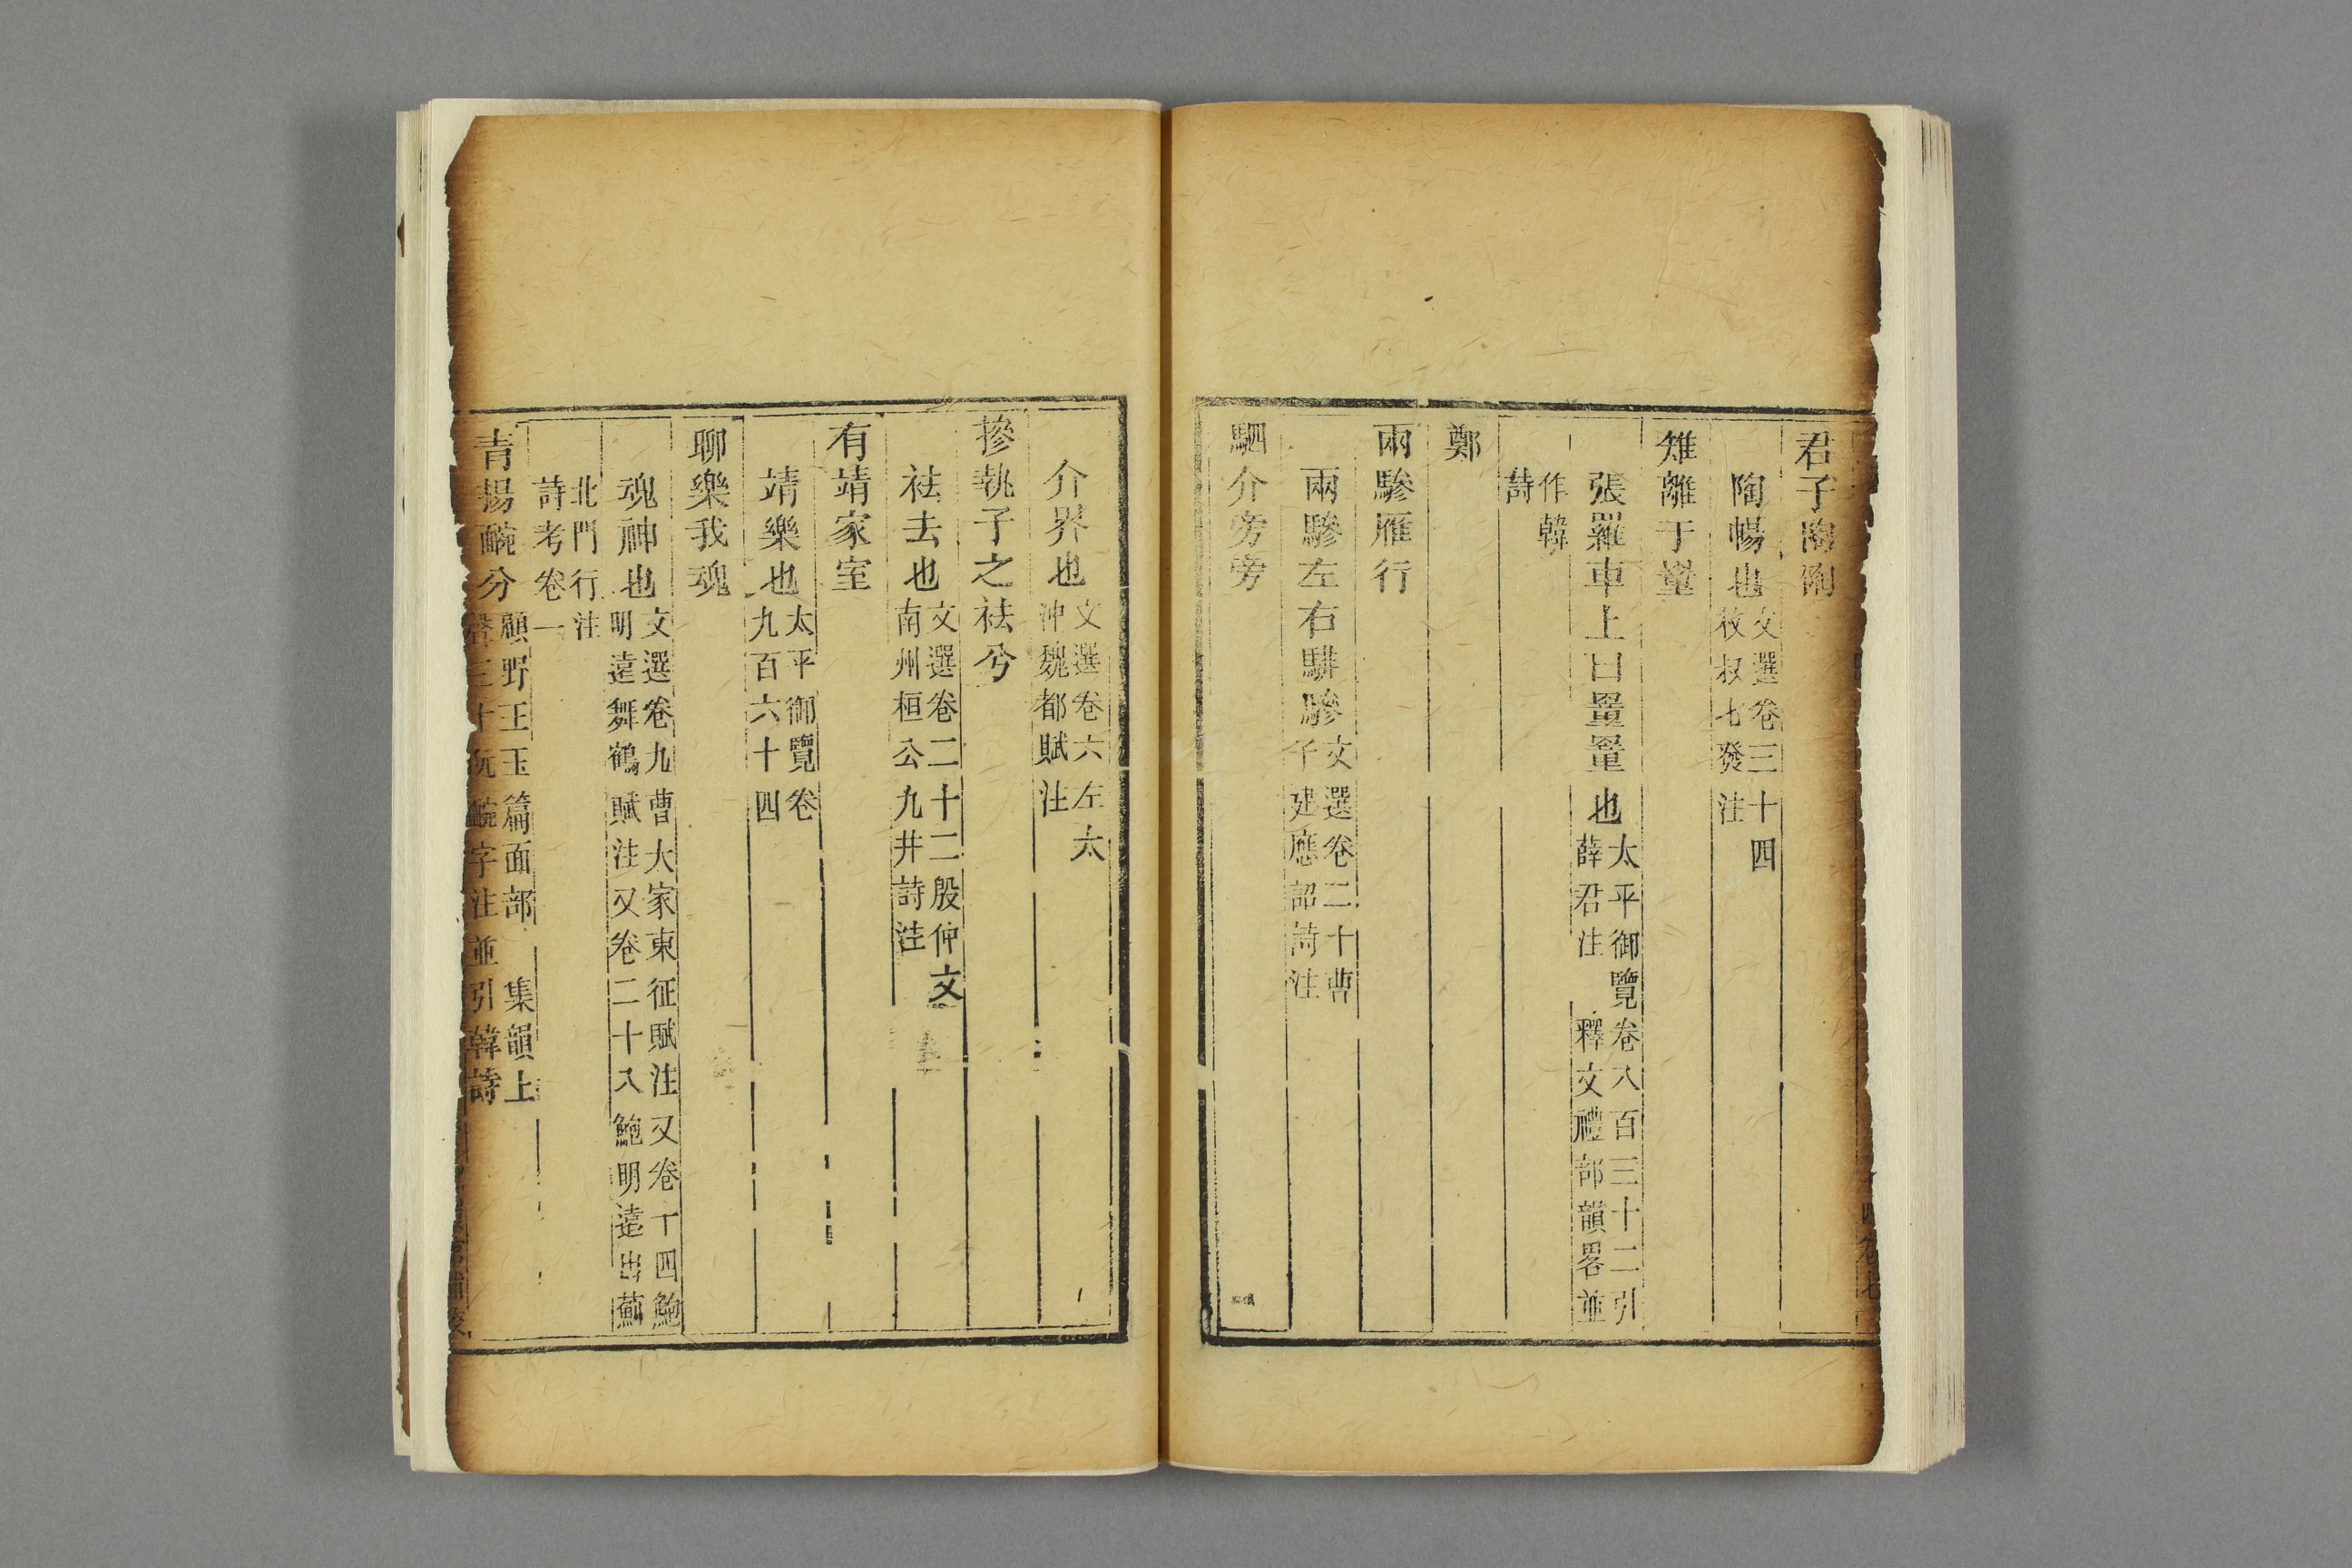 君子陶陶
陶暢也文選卷三十四
枚叔七發注
雉離于㚇
張羅車上曰㚇㚇也太平御覽卷八百三十二引
薛君注 釋文禮部韻畧並
作韓
詩
鄭
兩驂雁行
兩驂左右騑驂文選卷二十曹
子建應詔詩注
駟介旁旁
介界也文選卷六左太
沖魏都賦注
摻執子之袪兮
袪去也文選卷二十二殷仲文
南州桓公九井詩注
有靖家室
靖樂也太平御覽卷
九百六十四
聊樂我魂
魂神也文選卷九曹大家東征賦注又卷十四鮑
明遠舞鶴賦注又卷二十八鮑明遠出薊
北門行注
詩考卷一
青揚䩊兮顧野王玉篇面部 集韻上
聲三十阮䩊字注並引韓詩